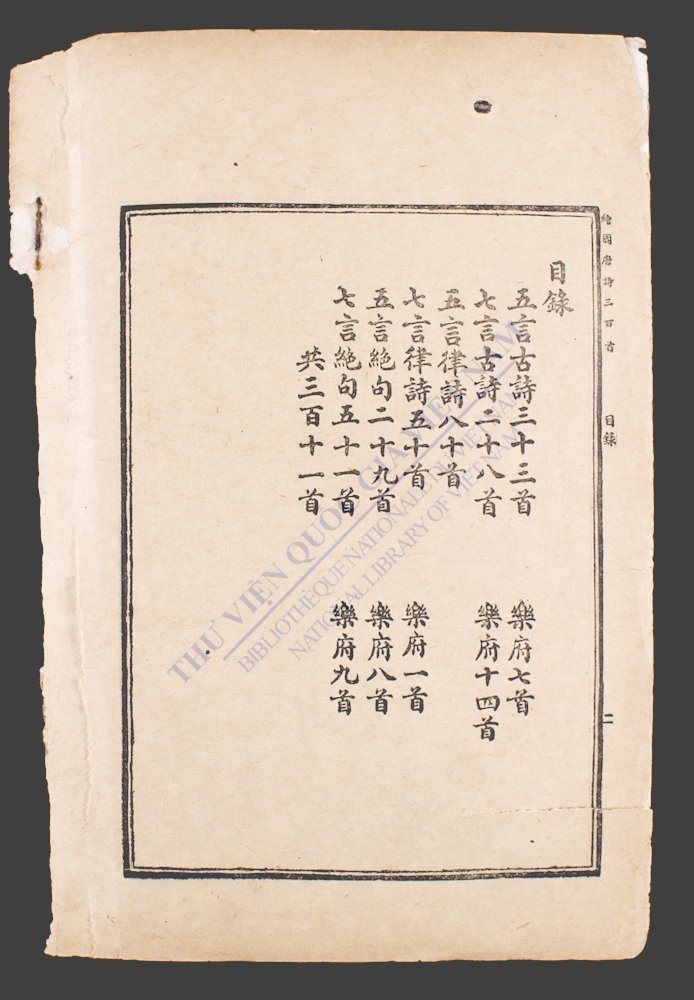 繪圖唐詩三百首 目錄 二
目錄
五言古詩三十三首 樂府七首
七言古詩二十八首 樂府十四首
五言律詩八十首
七言律詩五十首 樂府一首
五言絕句二十九首 樂府八首
七言絕句五十一首 樂府九首
共三百十一首
THƯ VIỆN QUỐC GIA VIỆT NAM
BIBLIOTHÈQUE NATIONALE DU VIETNAM
NATIONAL LIBRARY OF VIETNAM